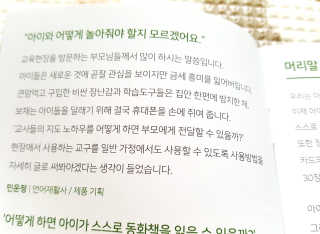 "아이와 어떻게 놀아줘야 할지 모르겠어요."
교육현장을 방문하는 부모님들께서 많이 하시는 말씀입니다.
아이들은 새로운 것에 곧잘 관심을 보이지만 금세 흥미를 잃어버립니다.
큰맘먹고 구입한 비싼 장난감과 학습도구들은 집안 한편에 방치한 채,
보채는 아이들을 달래기 위해 결국 휴대폰을 손에 쥐여 줍니다.
'교사들의 지도 노하우를 어떻게 하면 부모에게 전달할 수 있을까?'
현장에서 사용하는 교구를 일반 가정에서도 사용할 수 있도록 사용방법을
자세히 글로 써봐야겠다는 생각이 들었습니다.
민운정 | 언어재활사 / 제품 기획
'어떻게 하면 아이가 스스로 동화책을 읽을 수 있을까?'
머리말
우리는
이제
스스로
또한
카드
30장
아이
그